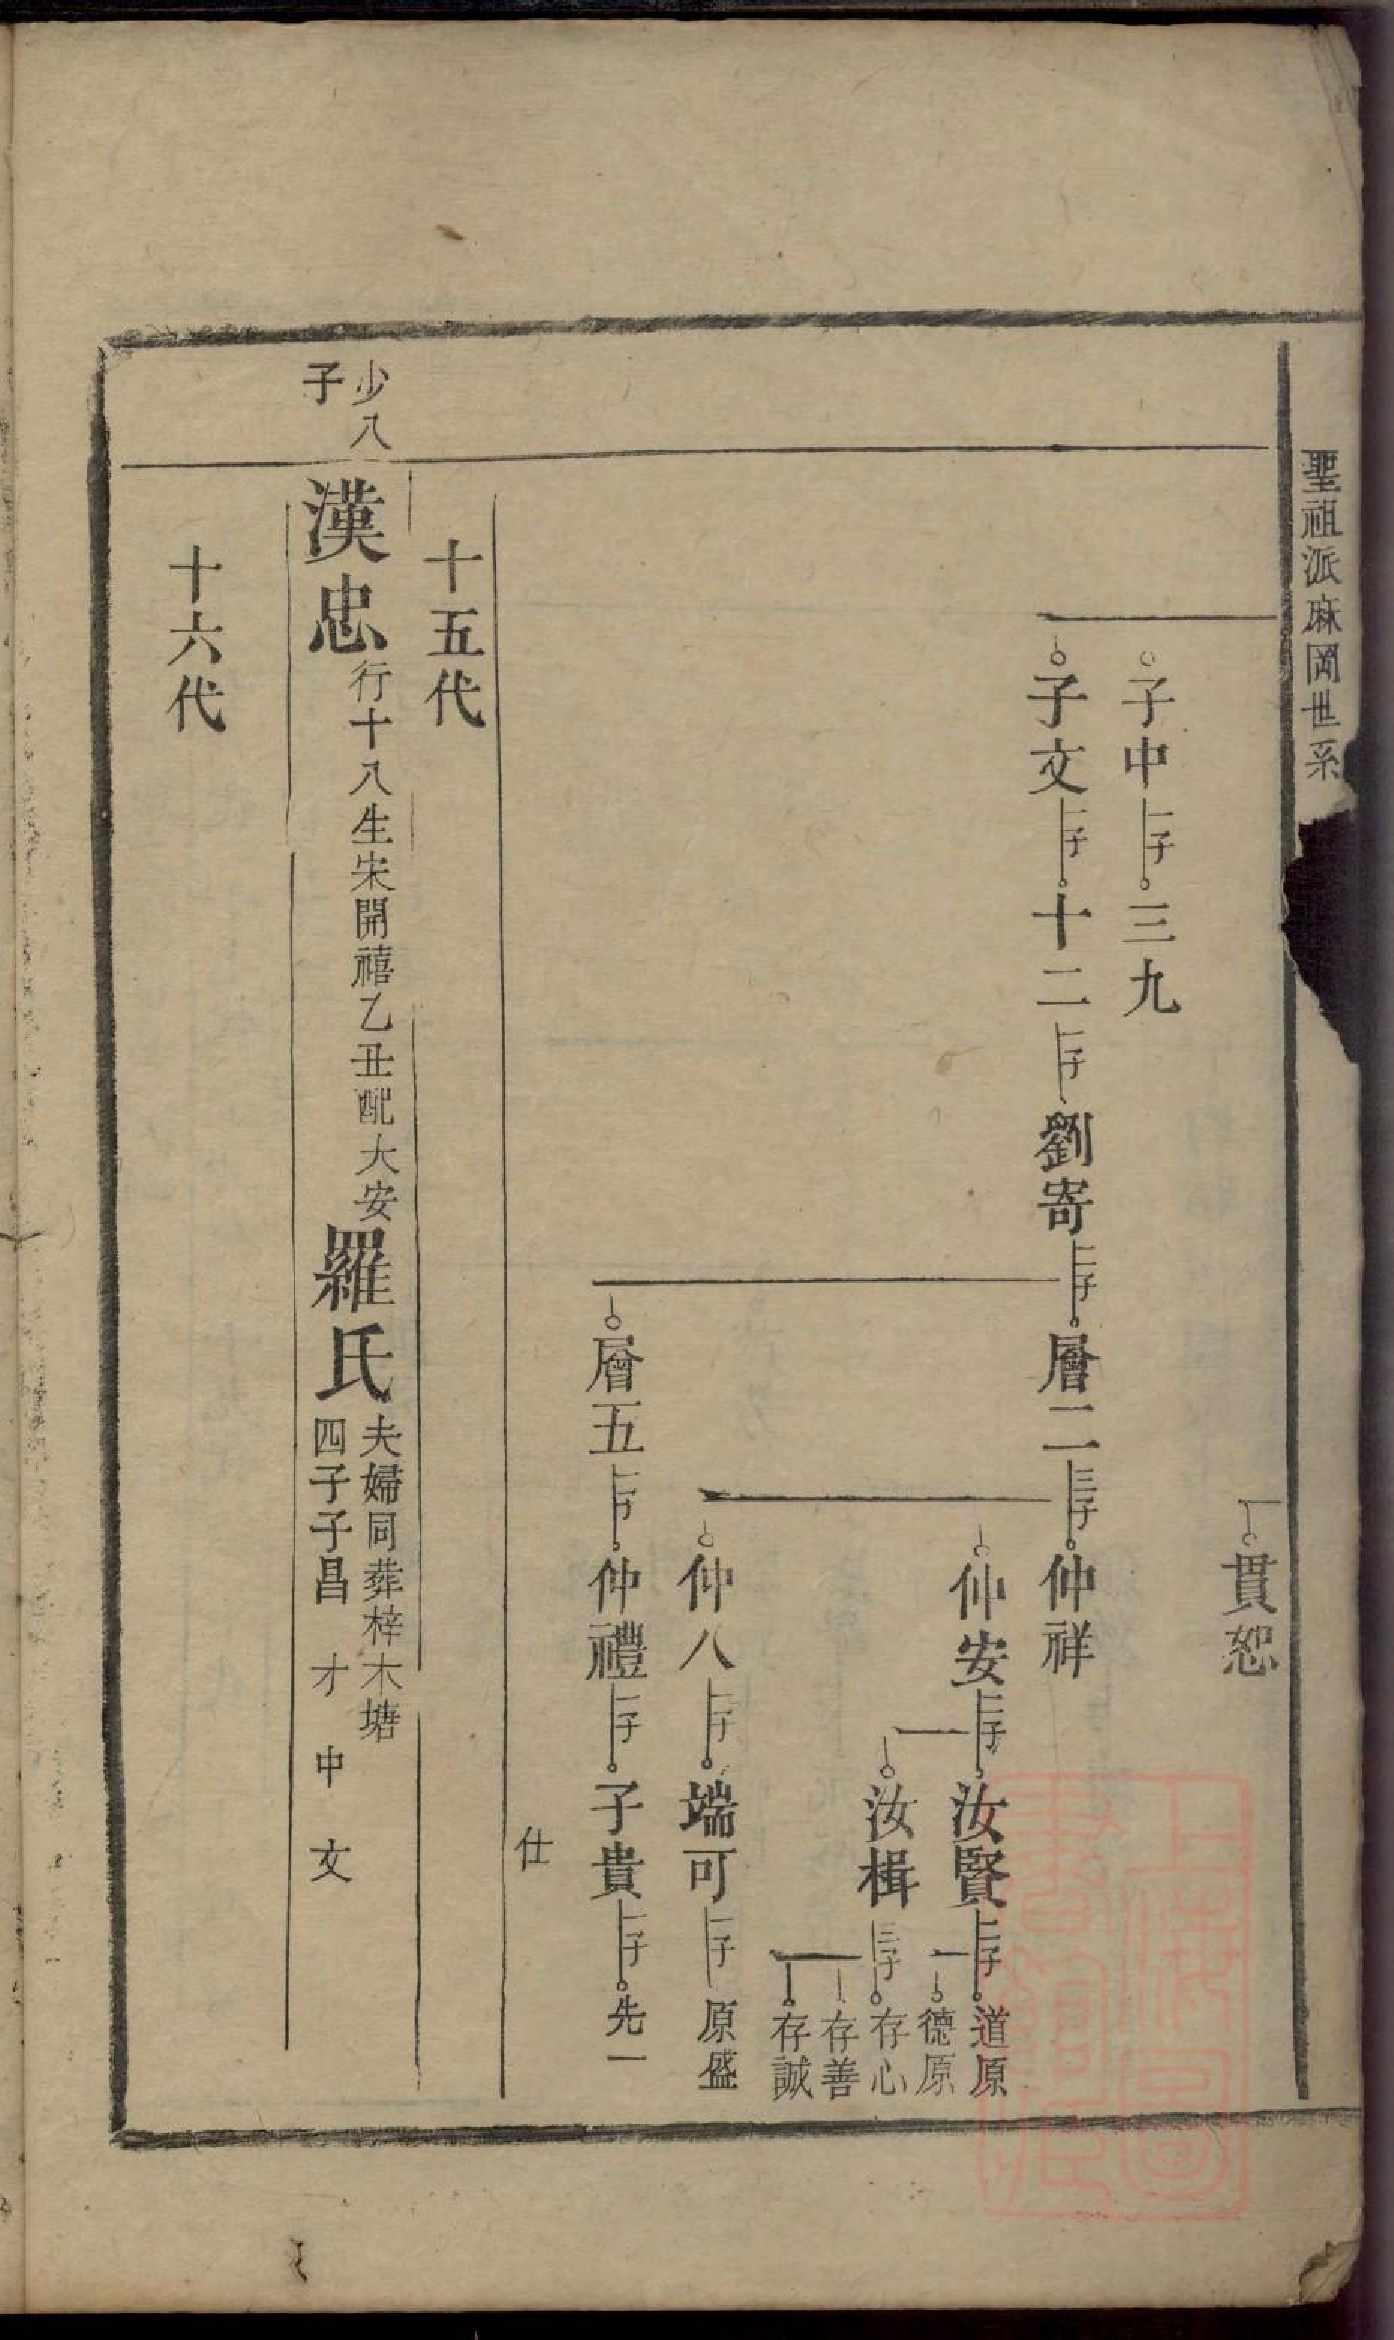 聖祖派麻岡世系
貫恕
子中一子三九
子文一子十二一子劉寄二子層二三子仲祥
仲安二子汝賢二子道原
德原
汝楫三子存心
存善
存誠
仲八一子端可一子原盛
層五一子仲禮一子子貴一子先一
仕
十五代
少八
子
漢忠行十八生宋開禧乙丑配大安羅氏夫婦同葬梓木塘
四子子昌 才 中 文
十六代
上海圖
書館藏